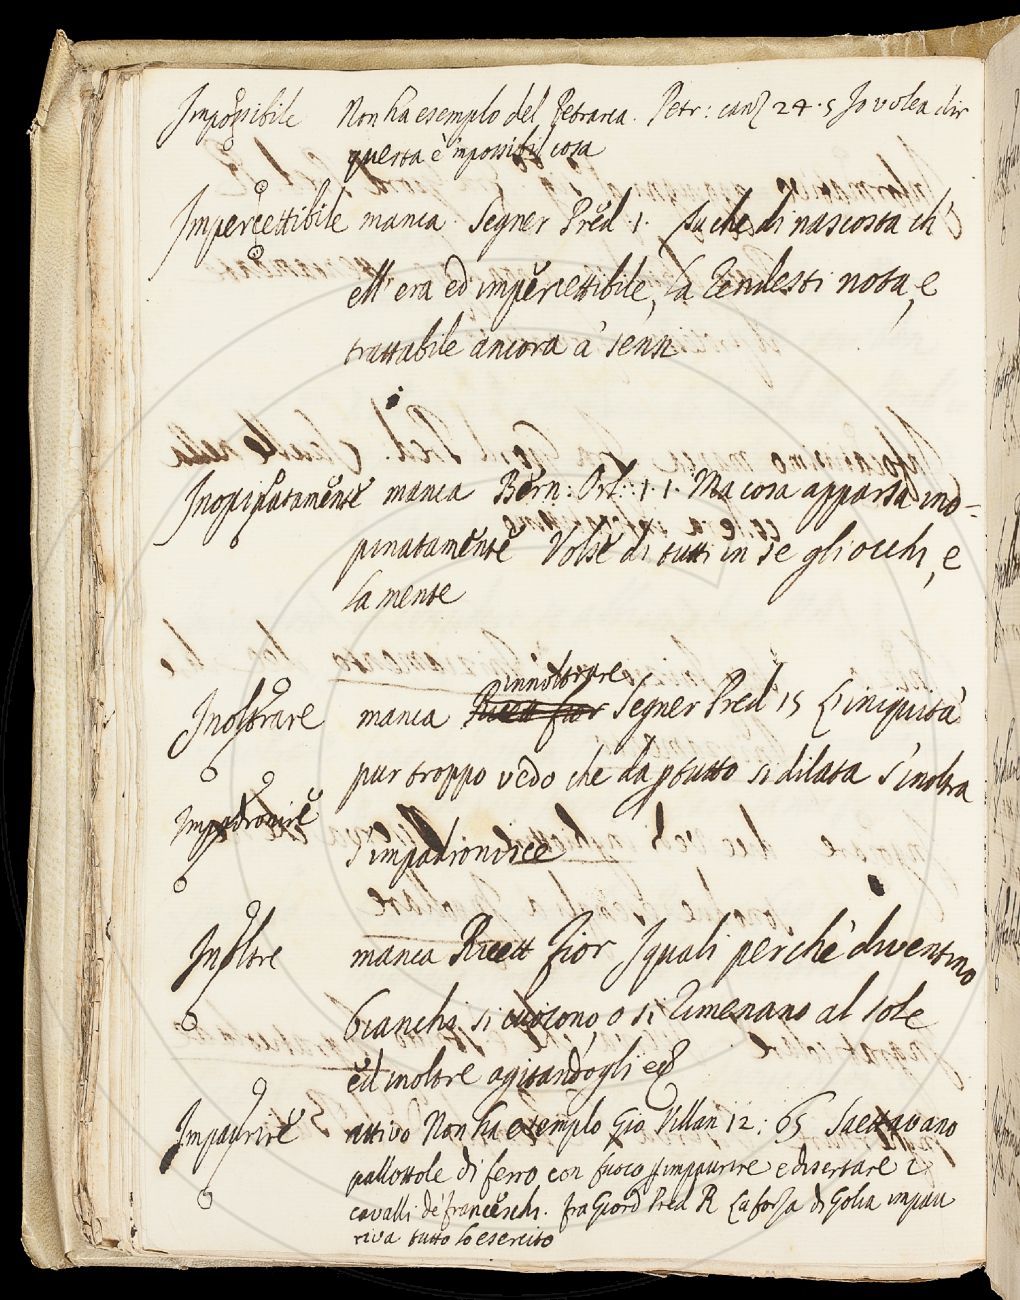 Impossibile Non ha esempio del Petrarca. Petr: canz 24. 5 Io volea dir
questa è impossibil cosa
Impercettibile manca. Segner Pred. 1. fu che di nascosta ch
ell' era ed impercettibile, la rendesti nota, e
trattabile ancora a' sensi
Inopinatamente manca Bern: Orl: 1. 1. Ma cosa apparsa ino-
pinatamente Volse di tutti in se gli occhi, e
la mente
innoltrare
Inoltrare manca Ricett fior Segner Pred 15 L'iniquità
pur troppo vedo che da p tutto si dilata s'inoltra
Impadronire
s'impadronisce
Inoltre manca Ricett Fior I quali perchè diventino
bianchi si cuocono, o si rimenano al sole
ed inoltre agitandogli ec
Impaurire attivo Non ha esemplo Gio Villan 12: 65 Saettavano
pallottole di ferro con fuoco p impaurire e disertare i
cavalli de' franceschi. fra Giord Pred R La forza di Golia impau
riva tutto lo esercito